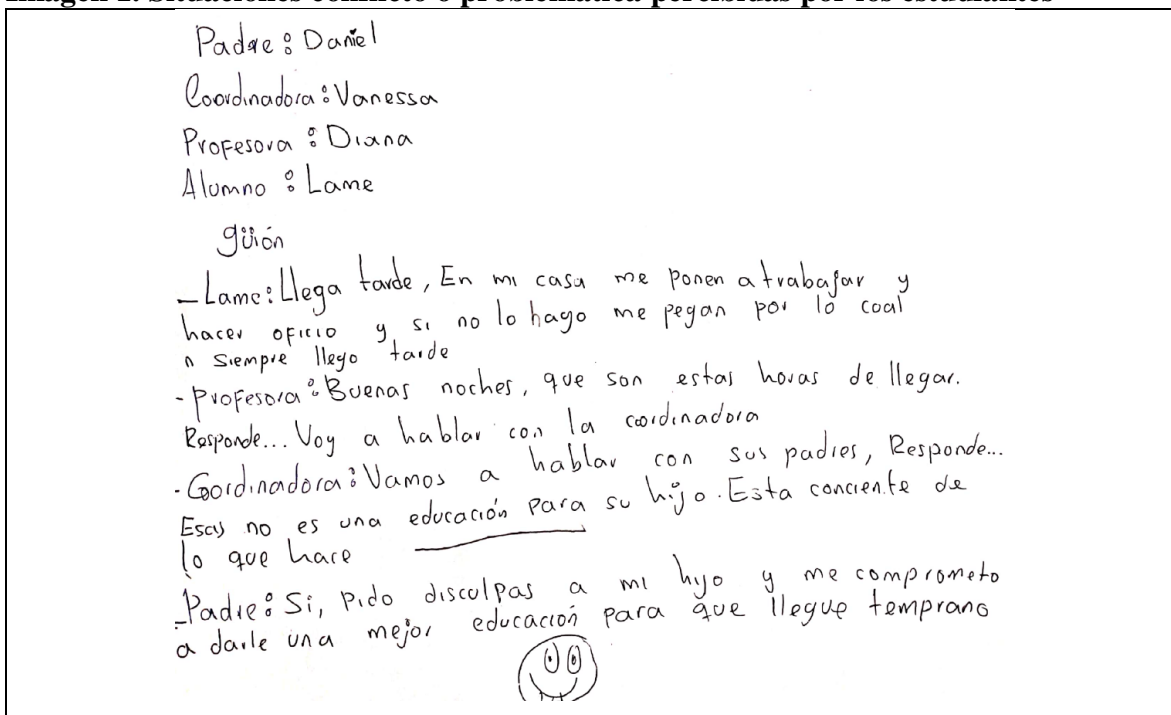 Imagen 1. Situaciones conflicto o problemática percibidas por los estudiantes
Padre: Daniel
Coordinadora: Vanessa
Profesora: Diana
Alumno: Lame
güión
- Lame: Llega tarde, En mi casa me ponen a trabajar y
hacer oficio y si no lo hago me pegan por lo coal
siempre llego tarde
- Profesora: Buenas noches, que son estas horas de llegar.
Responde... Voy a hablar con la coordinadora
- Coordinadora: Vamos a hablar con sus padres, Responde...
no es una educación para su hijo. Esta conciente de
lo que hace
- Padre: Si, pido disculpas a mi hijo y me comprometo
a darle una mejor educación para que llegue temprano